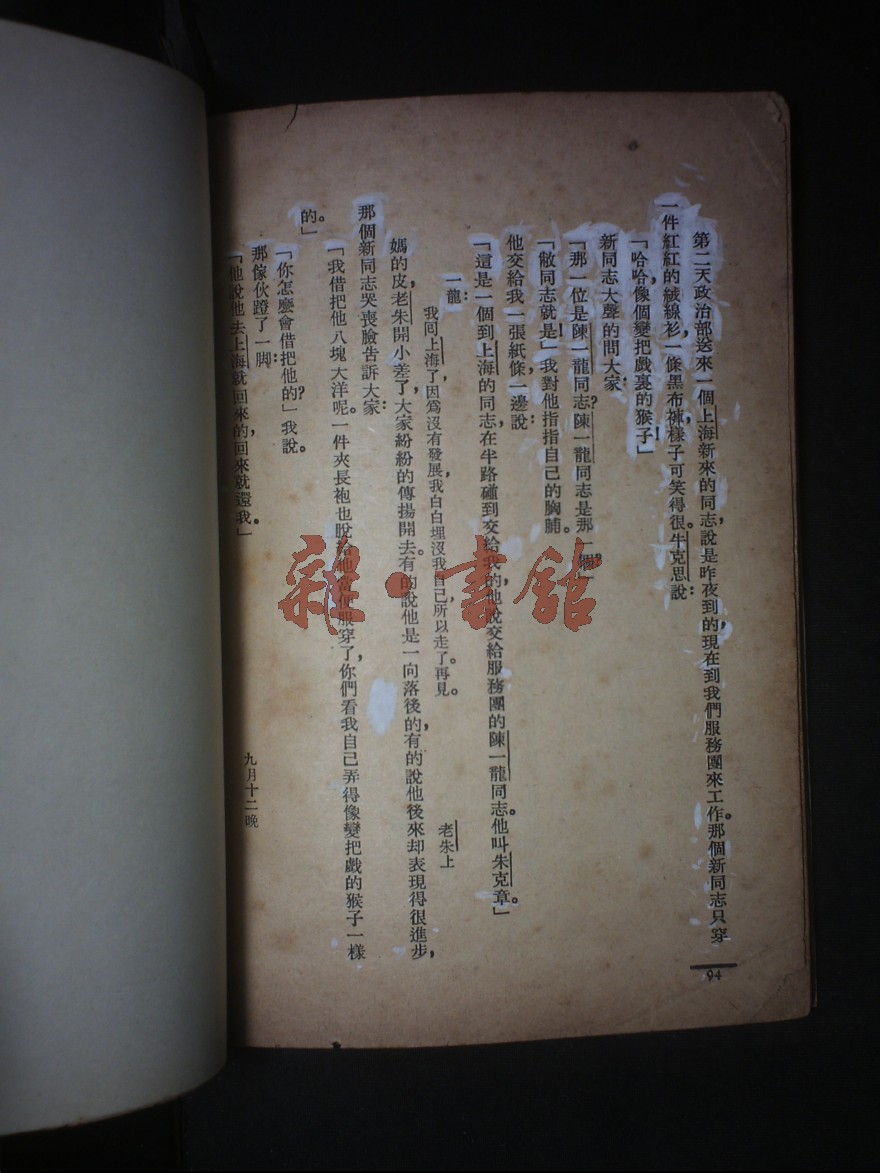 第二天政治部送來一個上海新來的同志，說是昨夜到的，現在到我們服務團來工作。那個新同志只穿
一件紅紅的絨線衫，一條黑布褲，樣子可笑得很。牛克思說：
「哈哈，像個變把戲裏的猴子！」
新同志大聲的問大家：
「那一位是陳一龍同志？陳一龍同志是那一個？」
「敝同志就是！」我對他指指自己的胸脯。
他交給我一張紙條，一邊說：
「這是一個到上海的同志，在半路碰到交給我的，他說交給服務團的陳一龍同志。他叫朱克章。」
一龍：
我回上海了，因爲沒有發展，我白白埋沒我自己，所以走了。再見。
老朱上
媽的皮，老朱開小差了，大家紛紛的傳揚開去。有的說他是一向落後的，有的說他後來却表現得很進步，
那個新同志哭喪臉告訴大家：
「我借把他八塊大洋呢。一件夾長袍也脫給他當便服穿了，你們看我自己弄得像變把戲的猴子一樣
的。」
「你怎麼會借把他的？」我說。
那傢伙蹬了一脚：
「他說他去上海就回來的，回來就還我。」
九月十二晚
94
雜·書館